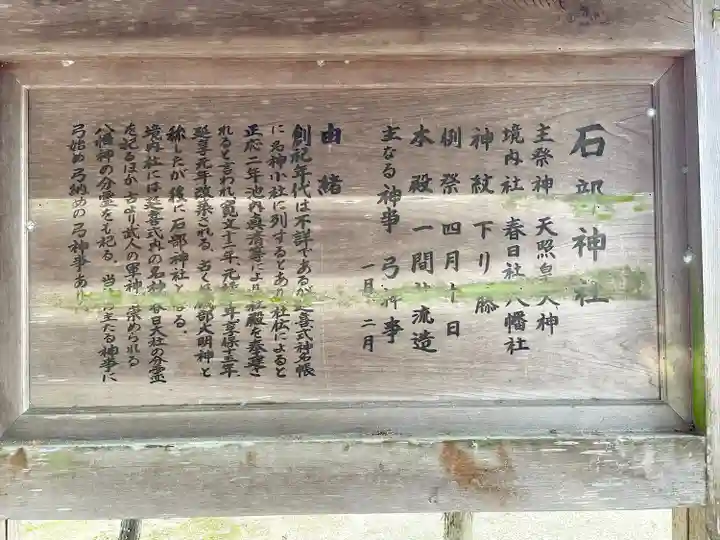 石部神社
主祭神 天照皇大神
境内社 春日社 八幡社
神紋 下り藤
例祭 四月 日
本殿 一間 流造
主なる神事 弓 事
一月 二月
由緒
創祀年代は不詳であるが 喜式神名帳
に名神小社に列するとあり 社伝によると
正応二年池内 によ 社殿を奉 さ
れると言われ寛文十二年 元 年 享保十五年、
延享元年改築される、古くは 部大明神と
称したが後に石部神社と る。
境内社には延喜式内の名神 春日大社の分霊
を祀るほか古より武人の軍神 崇められる
八幡神の分霊をも祀る。当 たる神事に
弓始め弓納めの弓神事あり